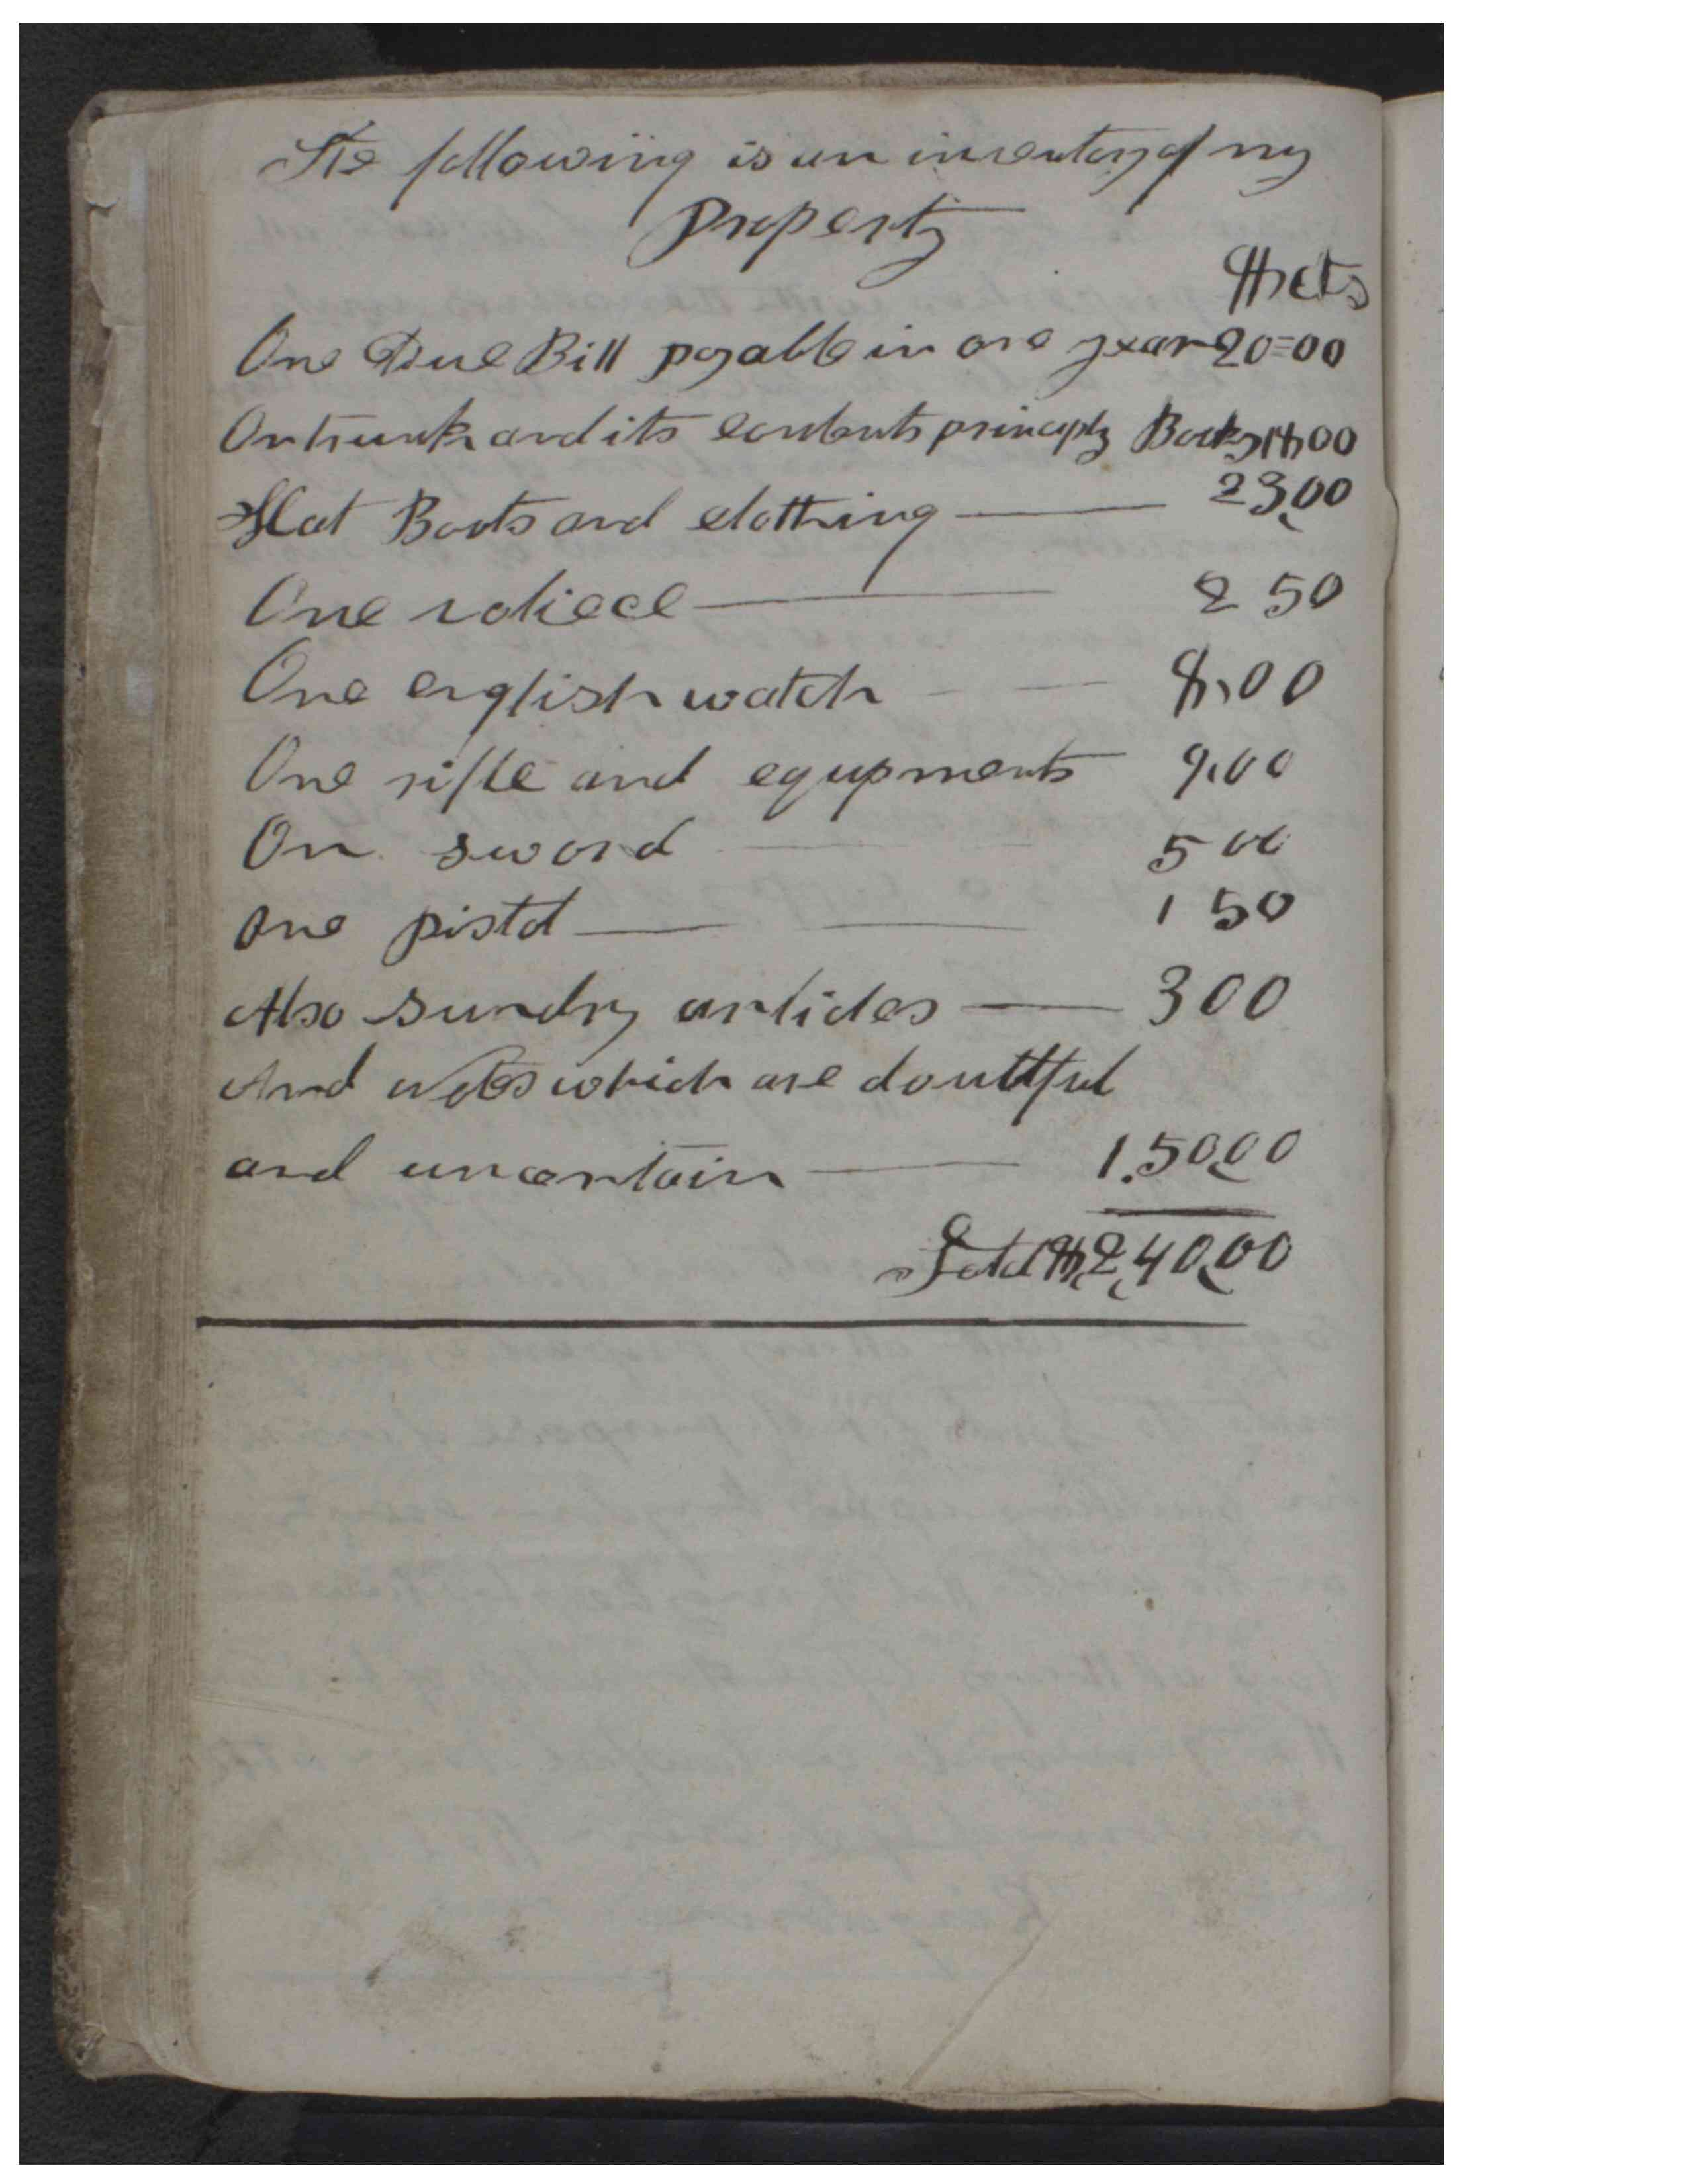 The following is an inventory of my
Property
$ cts
One Due Bill payable in one year 20=00
On trunk and its contents principly Books 18,00
Hat Boots and clothing — 23,00
One valiece — 2 50
One english watch — 8,00
One rifle and equpments 9.00
On sword — 5 00
One pistol — 1 50
Also sundry articles — 3 00
And Notes which are doubtful
and uncertain — 1.50,00
Total $2,40,00